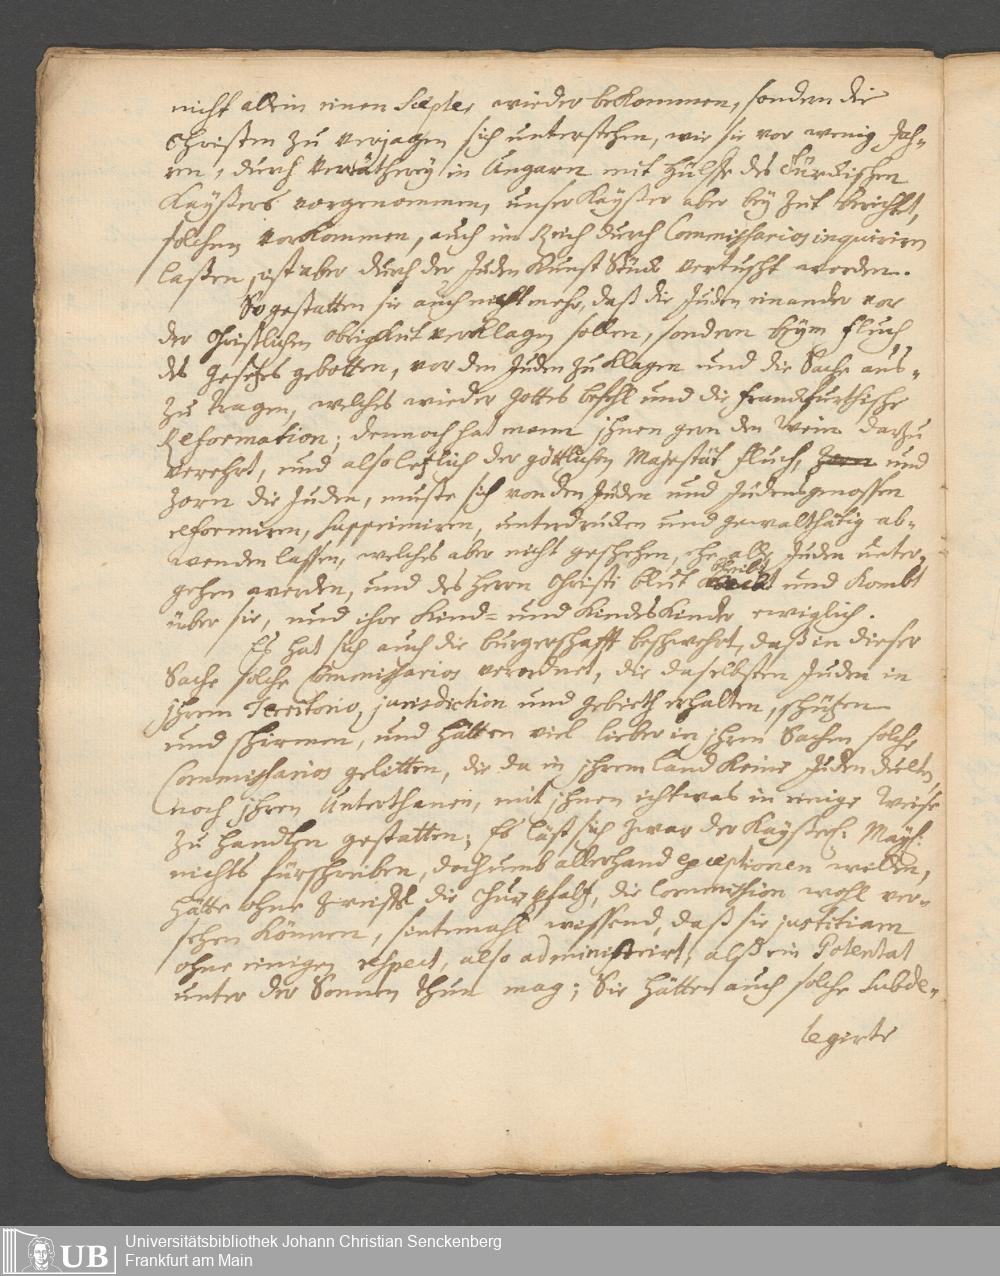 nicht allein einen Scepter wieder bekommen, sondern die
Christen zu verjagen sich unterstehen, wie sie vor wenig Jah-
ren, durch verräthrey in Ungarn mit hülffe des Türckischen
Kaÿsers vorgenommen, unser Kaÿser aber beÿ Zeit berichtet,
solchem vorkommen, auch im Reich durch Commissarios inquiriren
laßen, ist aber durch der Juden Kunst Stück vertuscht worden.
So gestatten sie auch nicht mehr, daß die Juden einander vor
der Christlichen obrigkeit verklagen sollen, sondern beÿm fluch
des Gesetzes gebotten, vor den Juden zu klagen und die Sache aus-
zu tragen, welches wieder Gottes befehl und die franckfurthische
Reformation; dennoch hat mann ihnen gern den Wein darzu
verehrt, und also letzlich der göttlichen Majestät fluch, und
zorn die Juden, muste sich von den Juden und Judensgenossen
reformiren, supprimiren, unterdrucken und gewalthätig ab-
wenden lassen, welches aber nicht geschehen, ehe alle Juden unter-
gehen werden, und des Herrn Christi blut bleibt und kombt
über sie, und ihre Kind- und Kindeskinder ewiglich.
Es hat sich auch die burgerschafft beschwehrt, daß in dieser
Sache solche Commissarios verordnet, die daselbsten Juden in
ihrem Territorio, jurisdiction und gebieth erhalten, schützen
und schirmen, und hätten viel lieber in ihrem Sachen solche
Commissarios gelitten, die da in ihrem land keine Juden dulten,
noch ihren Unterthanen, mit ihnen ichtwas in einige Weise
zu handlen gestatten; Es läst sich zwar der Kaÿserl: Maÿst:
nichts fürschreiben, doch umb allerhand exceptionen willen,
hätte ohne zweiffel die Chur pfaltz, die Commission wohl ver-
sehen können, sintemahl wissend, daß sie justitiam
ohne einigen respect, also administrirt, alß ein Potentat
unter der Sonnen thun mag; Sie hätten auch solche Subde-
legirte
Universitätsbibliothek Johann Christian Senckenberg
Frankfurt am Main
UB